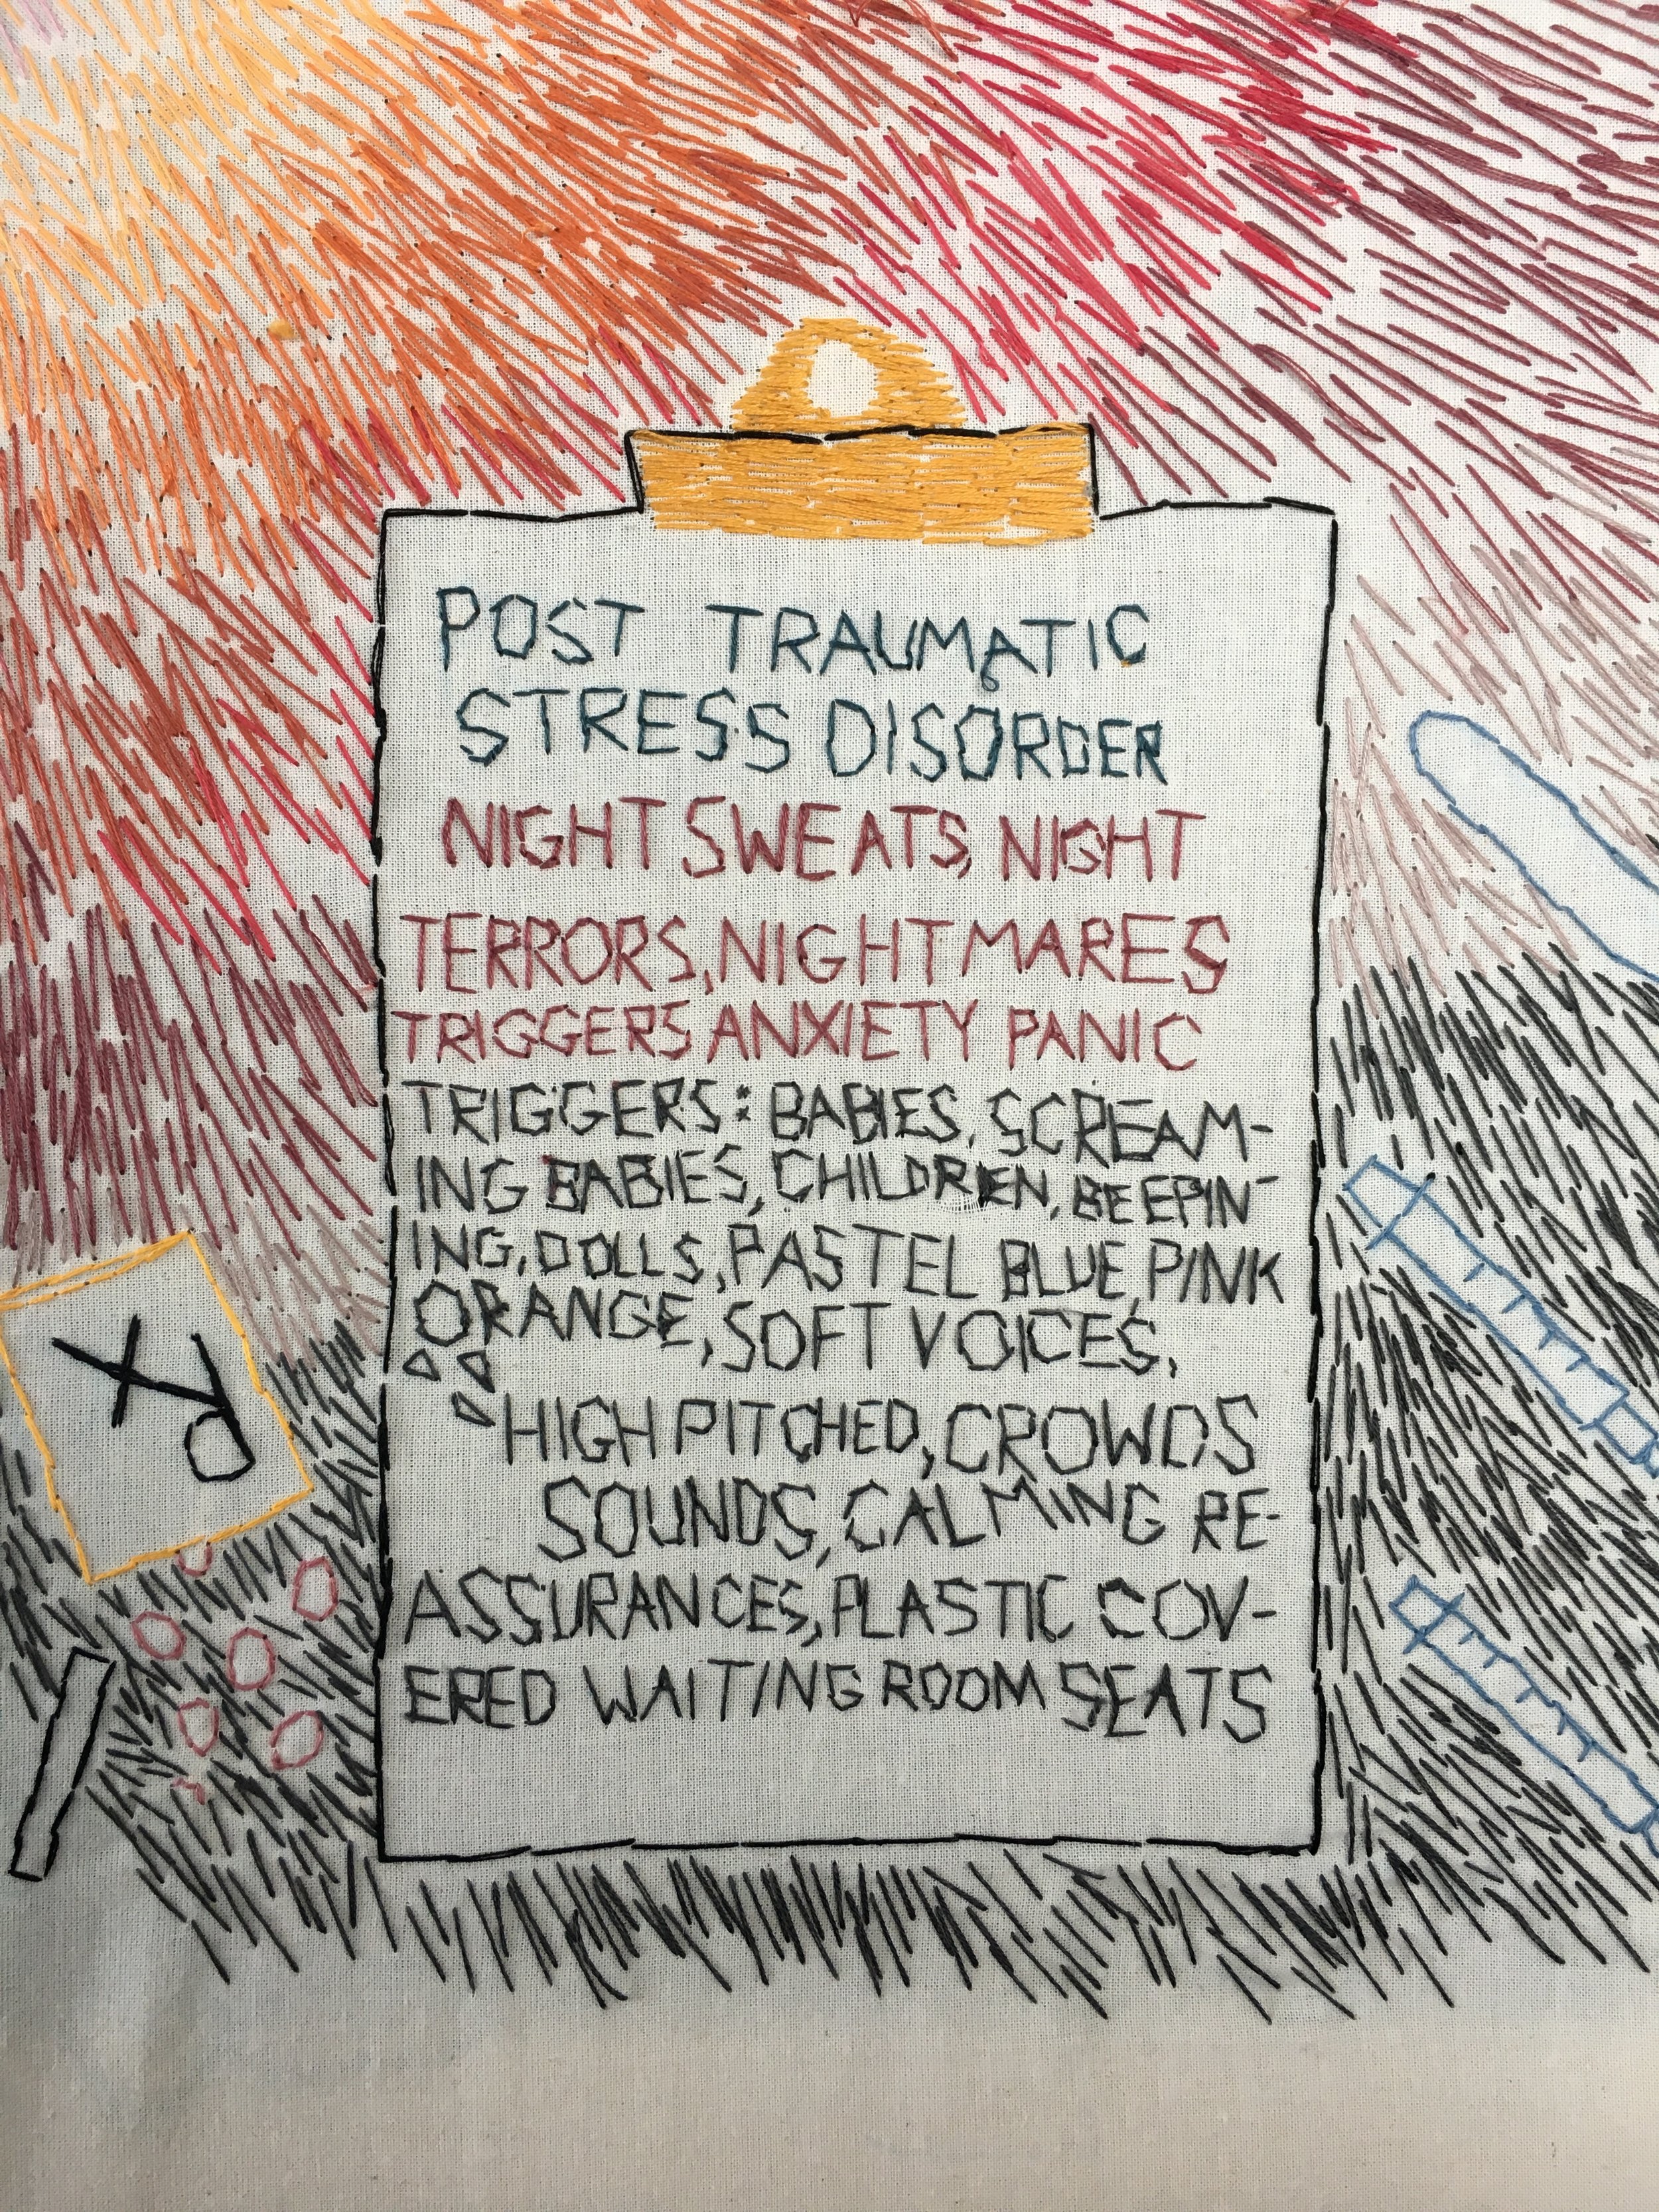 POST TRAUMATIC
STRESS DISORDER
NIGHT SWEATS, NIGHT
TERRORS, NIGHTMARES
TRIGGERS ANXIETY PANIC
TRIGGERS: BABIES, SCREAM-
ING BABIES, CHILDREN, BEEPIN-
ING, DOLLS, PASTEL BLUE, PINK
ORANGE, SOFT VOICES,
HIGH PITCHED, CROWDS
SOUNDS, CALMING RE-
ASSURANCES, PLASTIC COV-
ERED WAITING ROOM SEATS